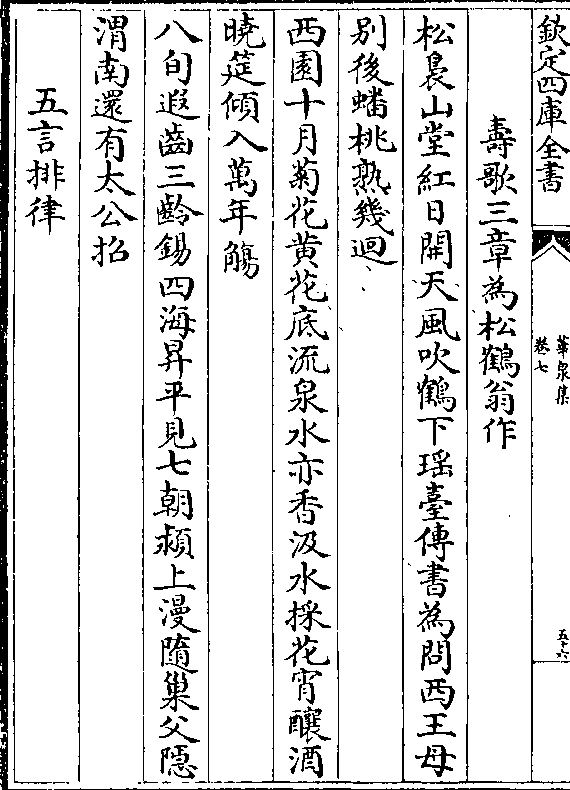 欽定四庫全書
華泉集
卷七
五十六
壽歌三章為松鶴翁作
松裊山堂紅日開天風吹鶴下瑶臺傳書為問西王母
别後蟠桃熟幾迴
西園十月菊花黄花底流泉水亦香汲水採花宵釀酒
曉筵傾入萬年觴
八旬遐齒三齡錫四海昇平見七朝潁上漫隨巢父隱
渭南還有太公招
五言排律